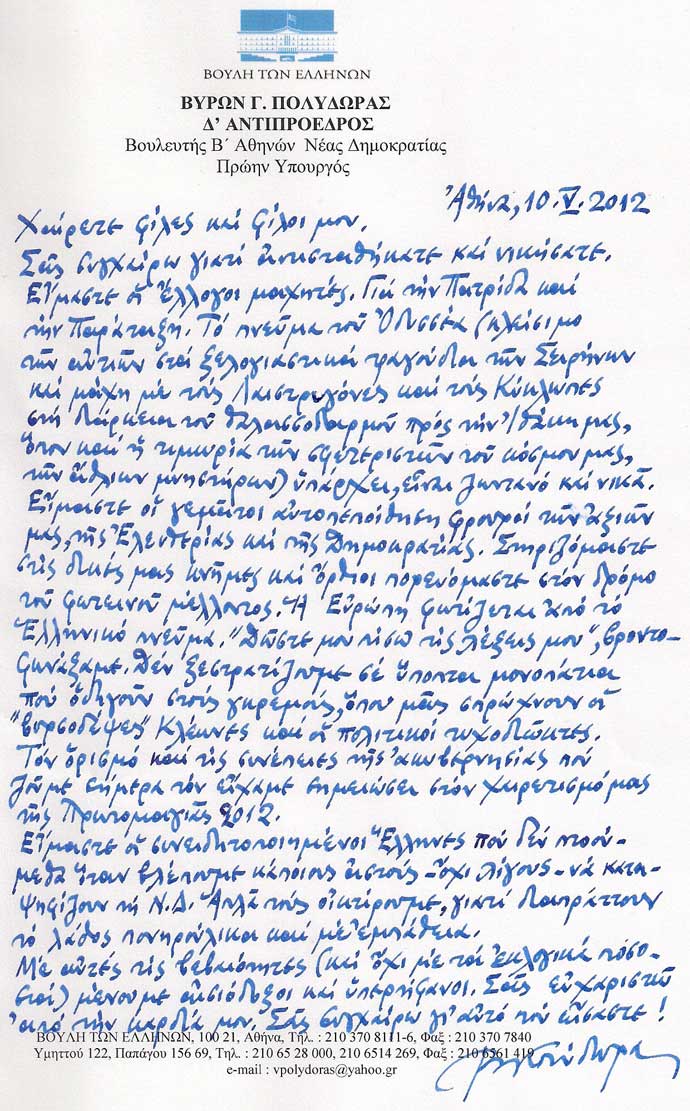 ΒΟΥΛΗ ΤΩΝ ΕΛΛΗΝΩΝ
ΒΥΡΩΝ Γ. ΠΟΛΥΔΩΡΑΣ
Δ' ΑΝΤΙΠΡΟΕΔΡΟΣ
Βουλευτής Β΄ Αθηνών Νέας Δημοκρατίας
Πρώην Υπουργός
Ἀθήνα, 10.V.2012
Χαίρετε φίλες καί φίλοι μου.
Σᾶς συγχαίρω γιατί ἀντισταθήκατε καί νικήσατε.
Εἴμαστε οἱ Ἔλλογοι μαχητές. Γιά τήν Πατρίδα καί
τήν Παράταξη. Τό πνεῦμα τοῦ Ὀδυσσέα (κλείσιμο
τῶν αὐτιῶν στά ξελογιαστικά τραγούδια τῶν Σειρήνων
καί μάχη μέ τούς Λαιστρυγόνες καί τούς Κύκλωπες
στή διάρκεια τοῦ θαλασσοδαρμοῦ πρός τήν Ἰθάκη μας,
ὅπου καί ἡ τιμωρία τῶν σφετεριστῶν τοῦ κόσμου μας,
τῶν ἄθλιων μνηστήρων) ὑπάρχει, εἶναι ζωντανό καί νικᾶ.
Εἴμαστε οἱ γεμᾶτοι αὐτοπεποίθηση φρουροί τῶν ἀξιῶν
μας, τῆς Ἐλευθερίας καί τῆς Δημοκρατίας. Στηριζόμαστε
στίς δικές μας κνῆμες καί ὄρθιοι πορευόμαστε στόν δρόμο
τοῦ φωτεινοῦ μέλλοντος. Ἡ Εὐρώπη φωτίζεται ἀπό τό
Ἑλληνικό πνεῦμα. "Δῶστε μου πίσω τίς λέξεις μου", βροντο-
φωνάξαμε. Δέν ξεστρατίζουμε σέ ὕποπτα μονοπάτια
πού ὁδηγοῦν στούς γκρεμούς, ὅπου μᾶς σπρώχνουν οἱ
"βυρσοδέψες" Κλέωνες καί οἱ πολιτικοί τυχοδιῶκτες.
Τόν ὁρισμό καί τίς συνέπειες τῆς ἀκυβερνησίας πού
ζοῦμε σήμερα τόν εἴχαμε σημειώσει στόν χαιρετισμό μας
τῆς Πρωτομαγιᾶς 2012.
Εἴμαστε οἱ συνειδητοποιημένοι Ἕλληνες πού δέν πτοού-
μεθα ὅταν βλέπουμε κάποιους ἀστούς - ὄχι λίγους - νά κατα-
ψηφίζουν τή Ν.Δ. Ἁπλᾶ τούς οἰκτίρουμε, γιατί διαπράττουν
τό λάθος πονηρούλικα καί μέ ἐμπάθεια.
Μέ αὐτές τίς βεβαιότητες (καί ὄχι μέ τά ἐκλογικά ποσο-
στά) μένουμε αἰσιόδοξοι καί ὑπερήφανοι. Σᾶς εὐχαριστῶ
ἀπό τήν καρδιά μου. Σᾶς συγχαίρω γι' αὐτό πού εἴσαστε!
ΒΟΥΛΗ ΤΩΝ ΕΛΛΗΝΩΝ, 100 21, Αθήνα, Τήλ. : 210 370 8111-6, Φαξ : 210 370 7840
Υμηττού 122, Παπάγου 156 69, Τηλ. : 210 65 28 000, 210 6514 269, Φαξ : 210 6561 419
e-mail : vpolydoras@yahoo.gr